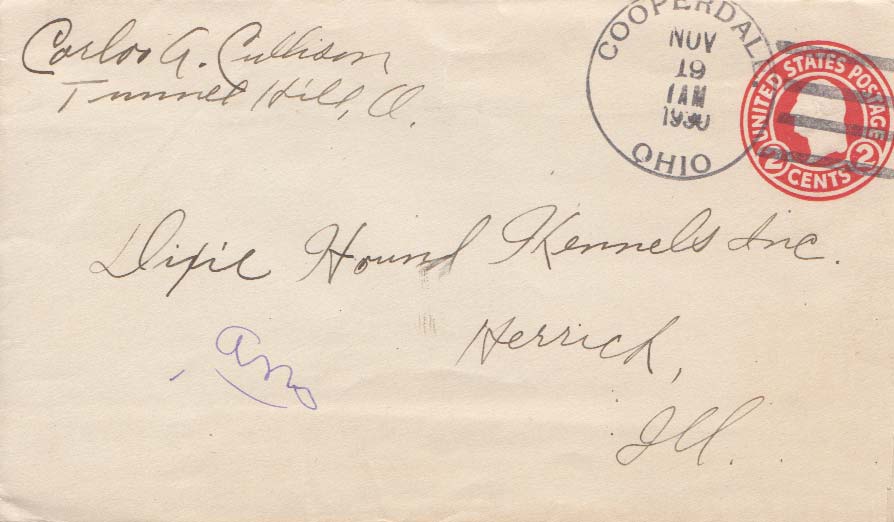 Carlos A. Cullison
Tunnel Hill, O.
COOPERDALE
NOV
19
1 AM
1930
OHIO
UNITED STATES POSTAGE
2 CENTS 2
Dixie Hound Kennels Inc.
Herrick,
Ill.